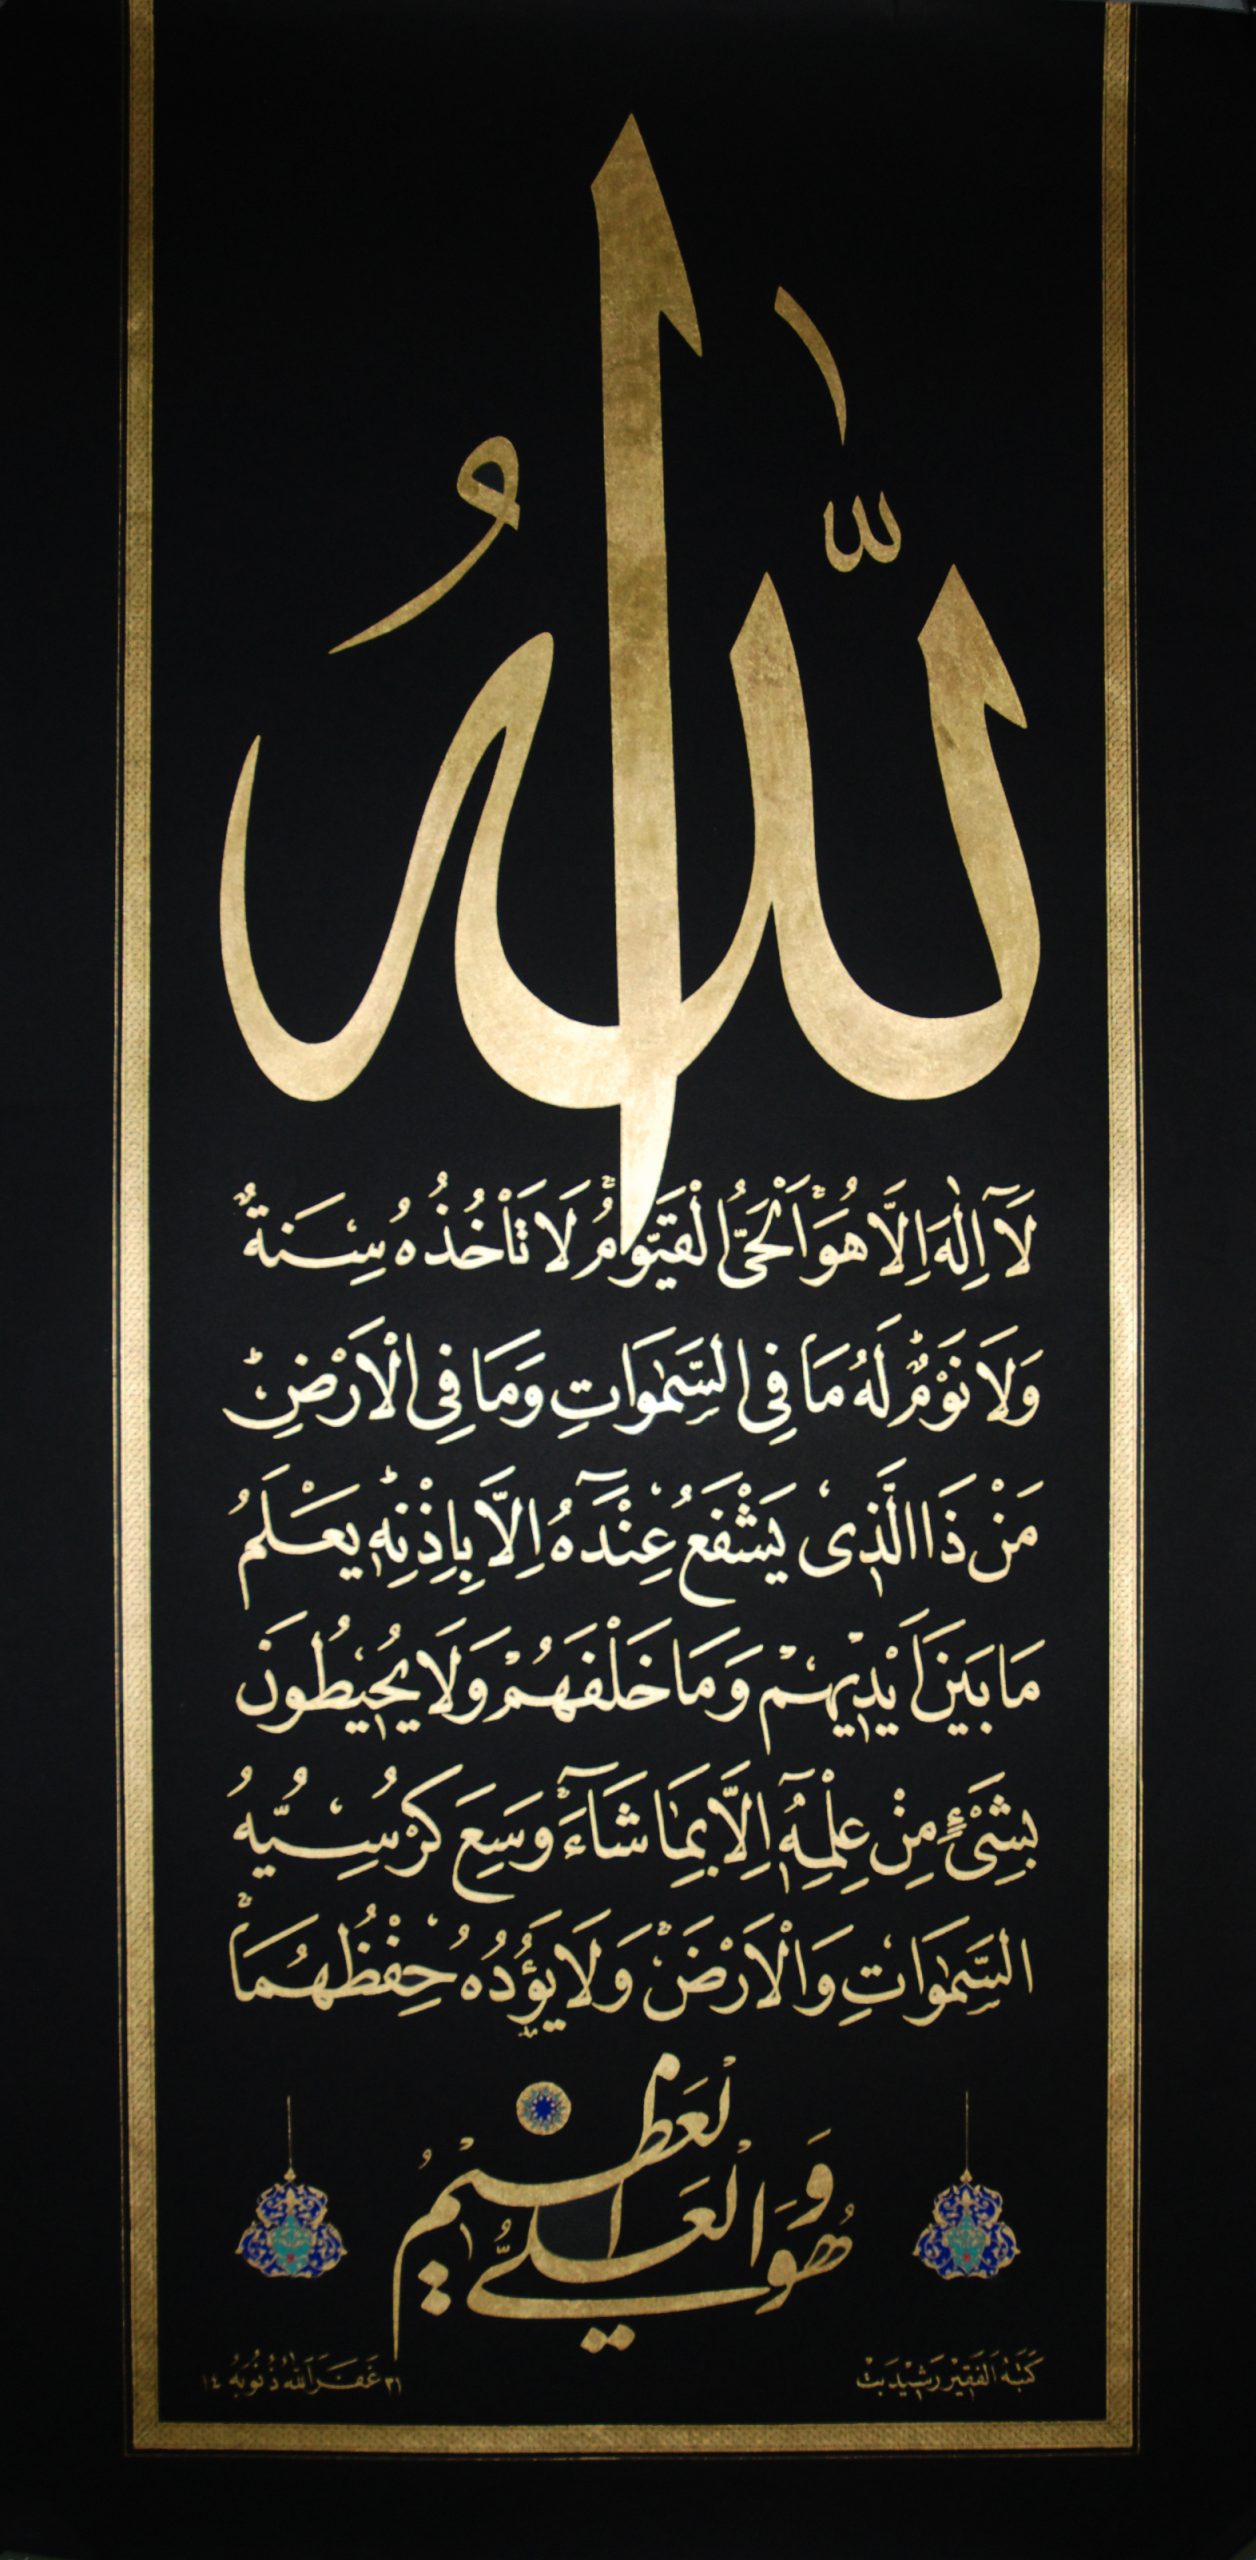 اَللّٰهُ
لَآ اِلٰهَ اِلَّا هُوَۚ اَلْحَيُّ الْقَيُّومُۚ لَا تَاْخُذُهُ سِنَةٌ
وَلَا نَوْمٌۜ لَهُ مَا فِى السَّمٰوَاتِ وَمَا فِى الْاَرْضِۜ
مَنْ ذَا الَّذٖى يَشْفَعُ عِنْدَهُٓ اِلَّا بِاِذْنِهٖۜ يَعْلَمُ
مَا بَيْنَ اَيْدٖيهِمْ وَمَا خَلْفَهُمْۚ وَلَا يُحٖيطُونَ
بِشَىْءٍ مِنْ عِلْمِهٖٓ اِلَّا بِمَا شَاءَۚ وَسِعَ كُرْسِيُّهُ
السَّمٰوَاتِ وَالْاَرْضَۚ وَلَا يَؤُدُهُ حِفْظُهُمَاۚ
وَهُوَ الْعَلِىُّ الْعَظٖيمُ
كَتَبَهُ الْفَقِيْر رَشِيْد بَتْ
غَفَرَ اللّٰهُ ذُنُوبَهُ ١٤٣١